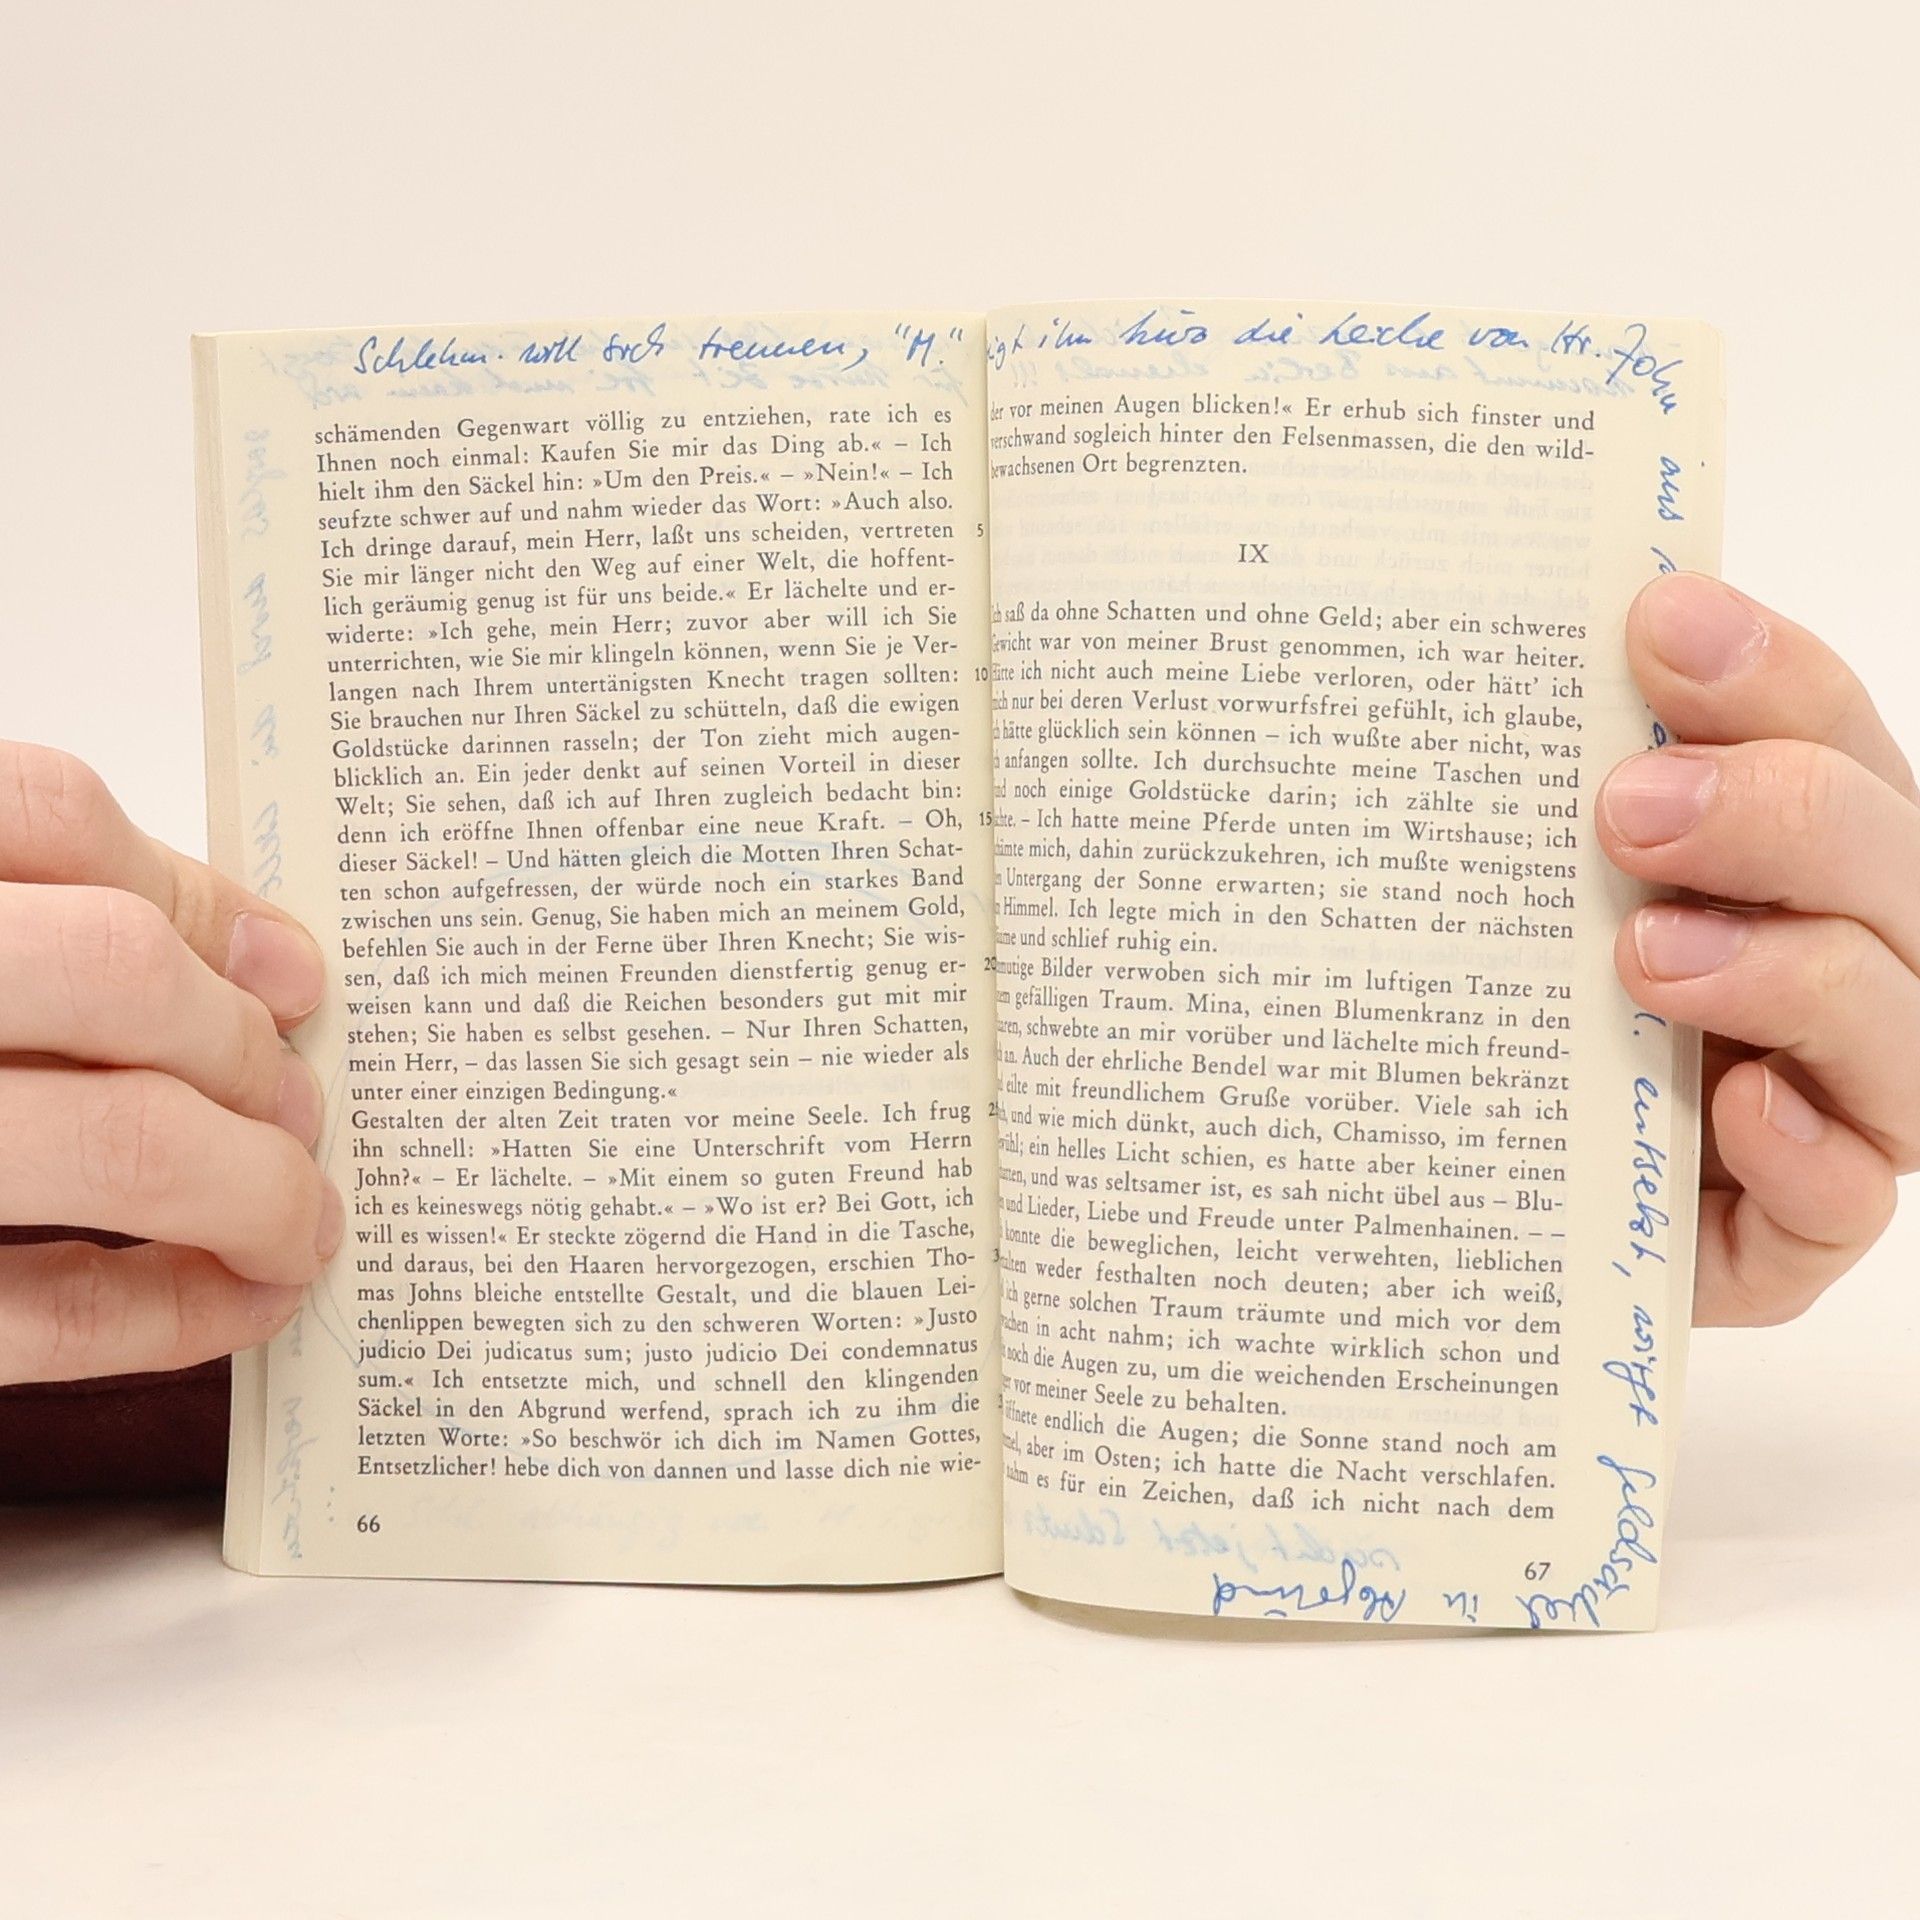 Schlehm. will sich trennen, "M."
schämenden Gegenwart völlig zu entziehen, rate ich es
Ihnen noch einmal: Kaufen Sie mir das Ding ab.« – Ich
hielt ihm den Säckel hin: »Um den Preis.« – »Nein!« – Ich
seufzte schwer auf und nahm wieder das Wort: »Auch also.
Ich dringe darauf, mein Herr, laßt uns scheiden, vertreten 5
Sie mir länger nicht den Weg auf einer Welt, die hoffent-
lich geräumig genug ist für uns beide.« Er lächelte und er-
widerte: »Ich gehe, mein Herr; zuvor aber will ich Sie
unterrichten, wie Sie mir klingeln können, wenn Sie je Ver-
langen nach Ihrem untertänigsten Knecht tragen sollten: 10
Sie brauchen nur Ihren Säckel zu schütteln, daß die ewigen
Goldstücke darinnen rasseln; der Ton zieht mich augen-
blicklich an. Ein jeder denkt auf seinen Vorteil in dieser
Welt; Sie sehen, daß ich auf Ihren zugleich bedacht bin:
denn ich eröffne Ihnen offenbar eine neue Kraft. – Oh, 15
dieser Säckel! – Und hätten gleich die Motten Ihren Schat-
ten schon aufgefressen, der würde noch ein starkes Band
zwischen uns sein. Genug, Sie haben mich an meinem Gold,
befehlen Sie auch in der Ferne über Ihren Knecht; Sie wis-
sen, daß ich mich meinen Freunden dienstfertig genug er- 20
weisen kann und daß die Reichen besonders gut mit mir
stehen; Sie haben es selbst gesehen. – Nur Ihren Schatten,
mein Herr, – das lassen Sie sich gesagt sein – nie wieder als
unter einer einzigen Bedingung.«
Gestalten der alten Zeit traten vor meine Seele. Ich frug
ihn schnell: »Hatten Sie eine Unterschrift vom Herrn
John?« – Er lächelte. – »Mit einem so guten Freund hab
ich es keineswegs nötig gehabt.« – »Wo ist er? Bei Gott, ich
will es wissen!« Er steckte zögernd die Hand in die Tasche,
und daraus, bei den Haaren hervorgezogen, erschien Tho-
mas Johns bleiche entstellte Gestalt, und die blauen Lei-
chenlippen bewegten sich zu den schweren Worten: »Justo
judicio Dei judicatus sum; justo judicio Dei condemnatus
sum.« Ich entsetzte mich, und schnell den klingenden
Säckel in den Abgrund werfend, sprach ich zu ihm die
letzten Worte: »So beschwör ich dich im Namen Gottes,
Entsetzlicher! hebe dich von dannen und lasse dich nie wie-
66
ihm die Leiche von Hr.
John aus
entsetzt, wirft Geldsäckel
in Abgrund
der vor meinen Augen blicken!« Er erhub sich finster und
verschwand sogleich hinter den Felsenmassen, die den wild-
bewachsenen Ort begrenzten.
IX
Ich saß da ohne Schatten und ohne Geld; aber ein schweres
Gewicht war von meiner Brust genommen, ich war heiter.
Hätte ich nicht auch meine Liebe verloren, oder hätt' ich
mich nur bei deren Verlust vorwurfsfrei gefühlt, ich glaube,
ich hätte glücklich sein können – ich wußte aber nicht, was
ich anfangen sollte. Ich durchsuchte meine Taschen und
fand noch einige Goldstücke darin; ich zählte sie und
– Ich hatte meine Pferde unten im Wirtshause; ich
mich, dahin zurückzukehren, ich mußte wenigstens
Untergang der Sonne erwarten; sie stand noch hoch
Himmel. Ich legte mich in den Schatten der nächsten
und schlief ruhig ein.
Bilder verwoben sich mir im luftigen Tanze zu
gefälligen Traum. Mina, einen Blumenkranz in den
schwebte an mir vorüber und lächelte mich freund-
an. Auch der ehrliche Bendel war mit Blumen bekränzt
eilte mit freundlichem Gruße vorüber. Viele sah ich
und wie mich dünkt, auch dich, Chamisso, im fernen
ein helles Licht schien, es hatte aber keiner einen
und was seltsamer ist, es sah nicht übel aus – Blu-
und Lieder, Liebe und Freude unter Palmenhainen. – –
konnte die beweglichen, leicht verwehten, lieblichen
weder festhalten noch deuten; aber ich weiß,
ich gerne solchen Traum träumte und mich vor dem
in acht nahm; ich wachte wirklich schon und
noch die Augen zu, um die weichenden Erscheinungen
vor meiner Seele zu behalten.
endlich die Augen; die Sonne stand noch am
aber im Osten; ich hatte die Nacht verschlafen.
nahm es für ein Zeichen, daß ich nicht nach dem
67